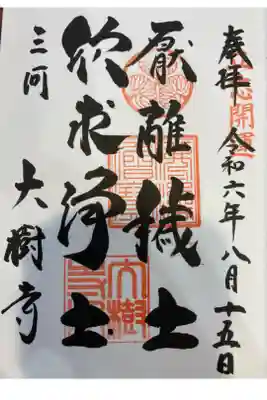 奉拝 令和六年八月十五日
厭離穢土
欣求浄土
三河 大樹寺